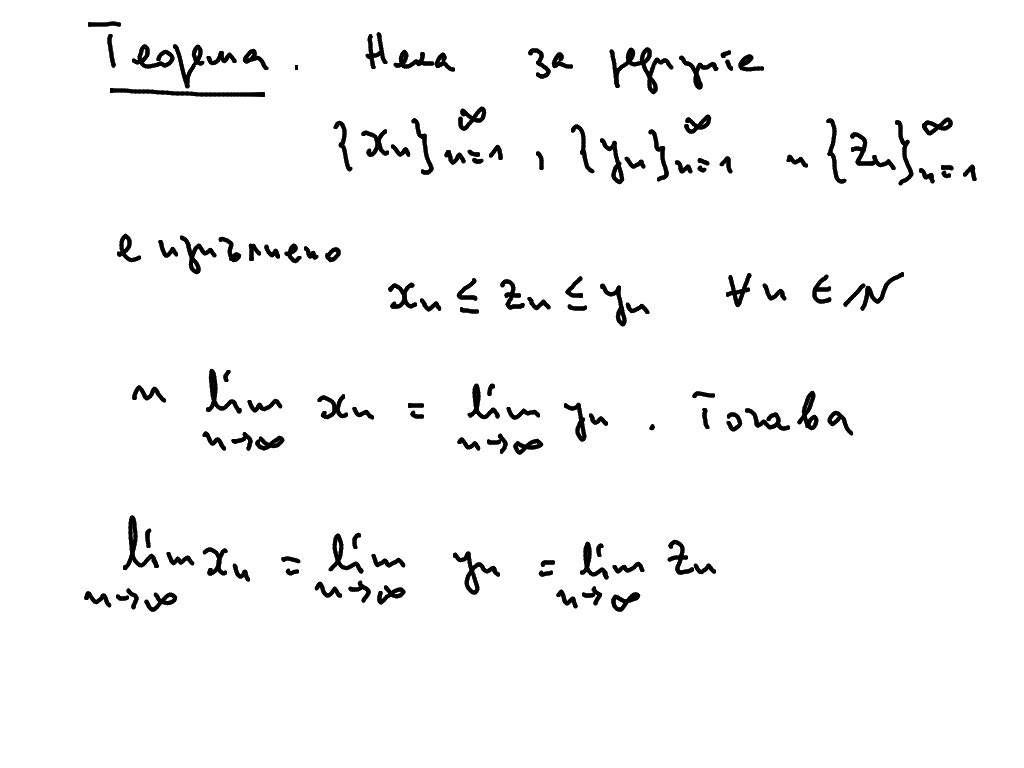 Теорема. Нека за редиците
{xₙ}ₙ₌₁^∞, {yₙ}ₙ₌₁^∞ и {zₙ}ₙ₌₁^∞
е изпълнено
xₙ ≤ zₙ ≤ yₙ ∀n ∈ ℕ
и lim_{n→∞} xₙ = lim_{n→∞} yₙ. Тогава
lim_{n→∞} xₙ = lim_{n→∞} yₙ = lim_{n→∞} zₙ